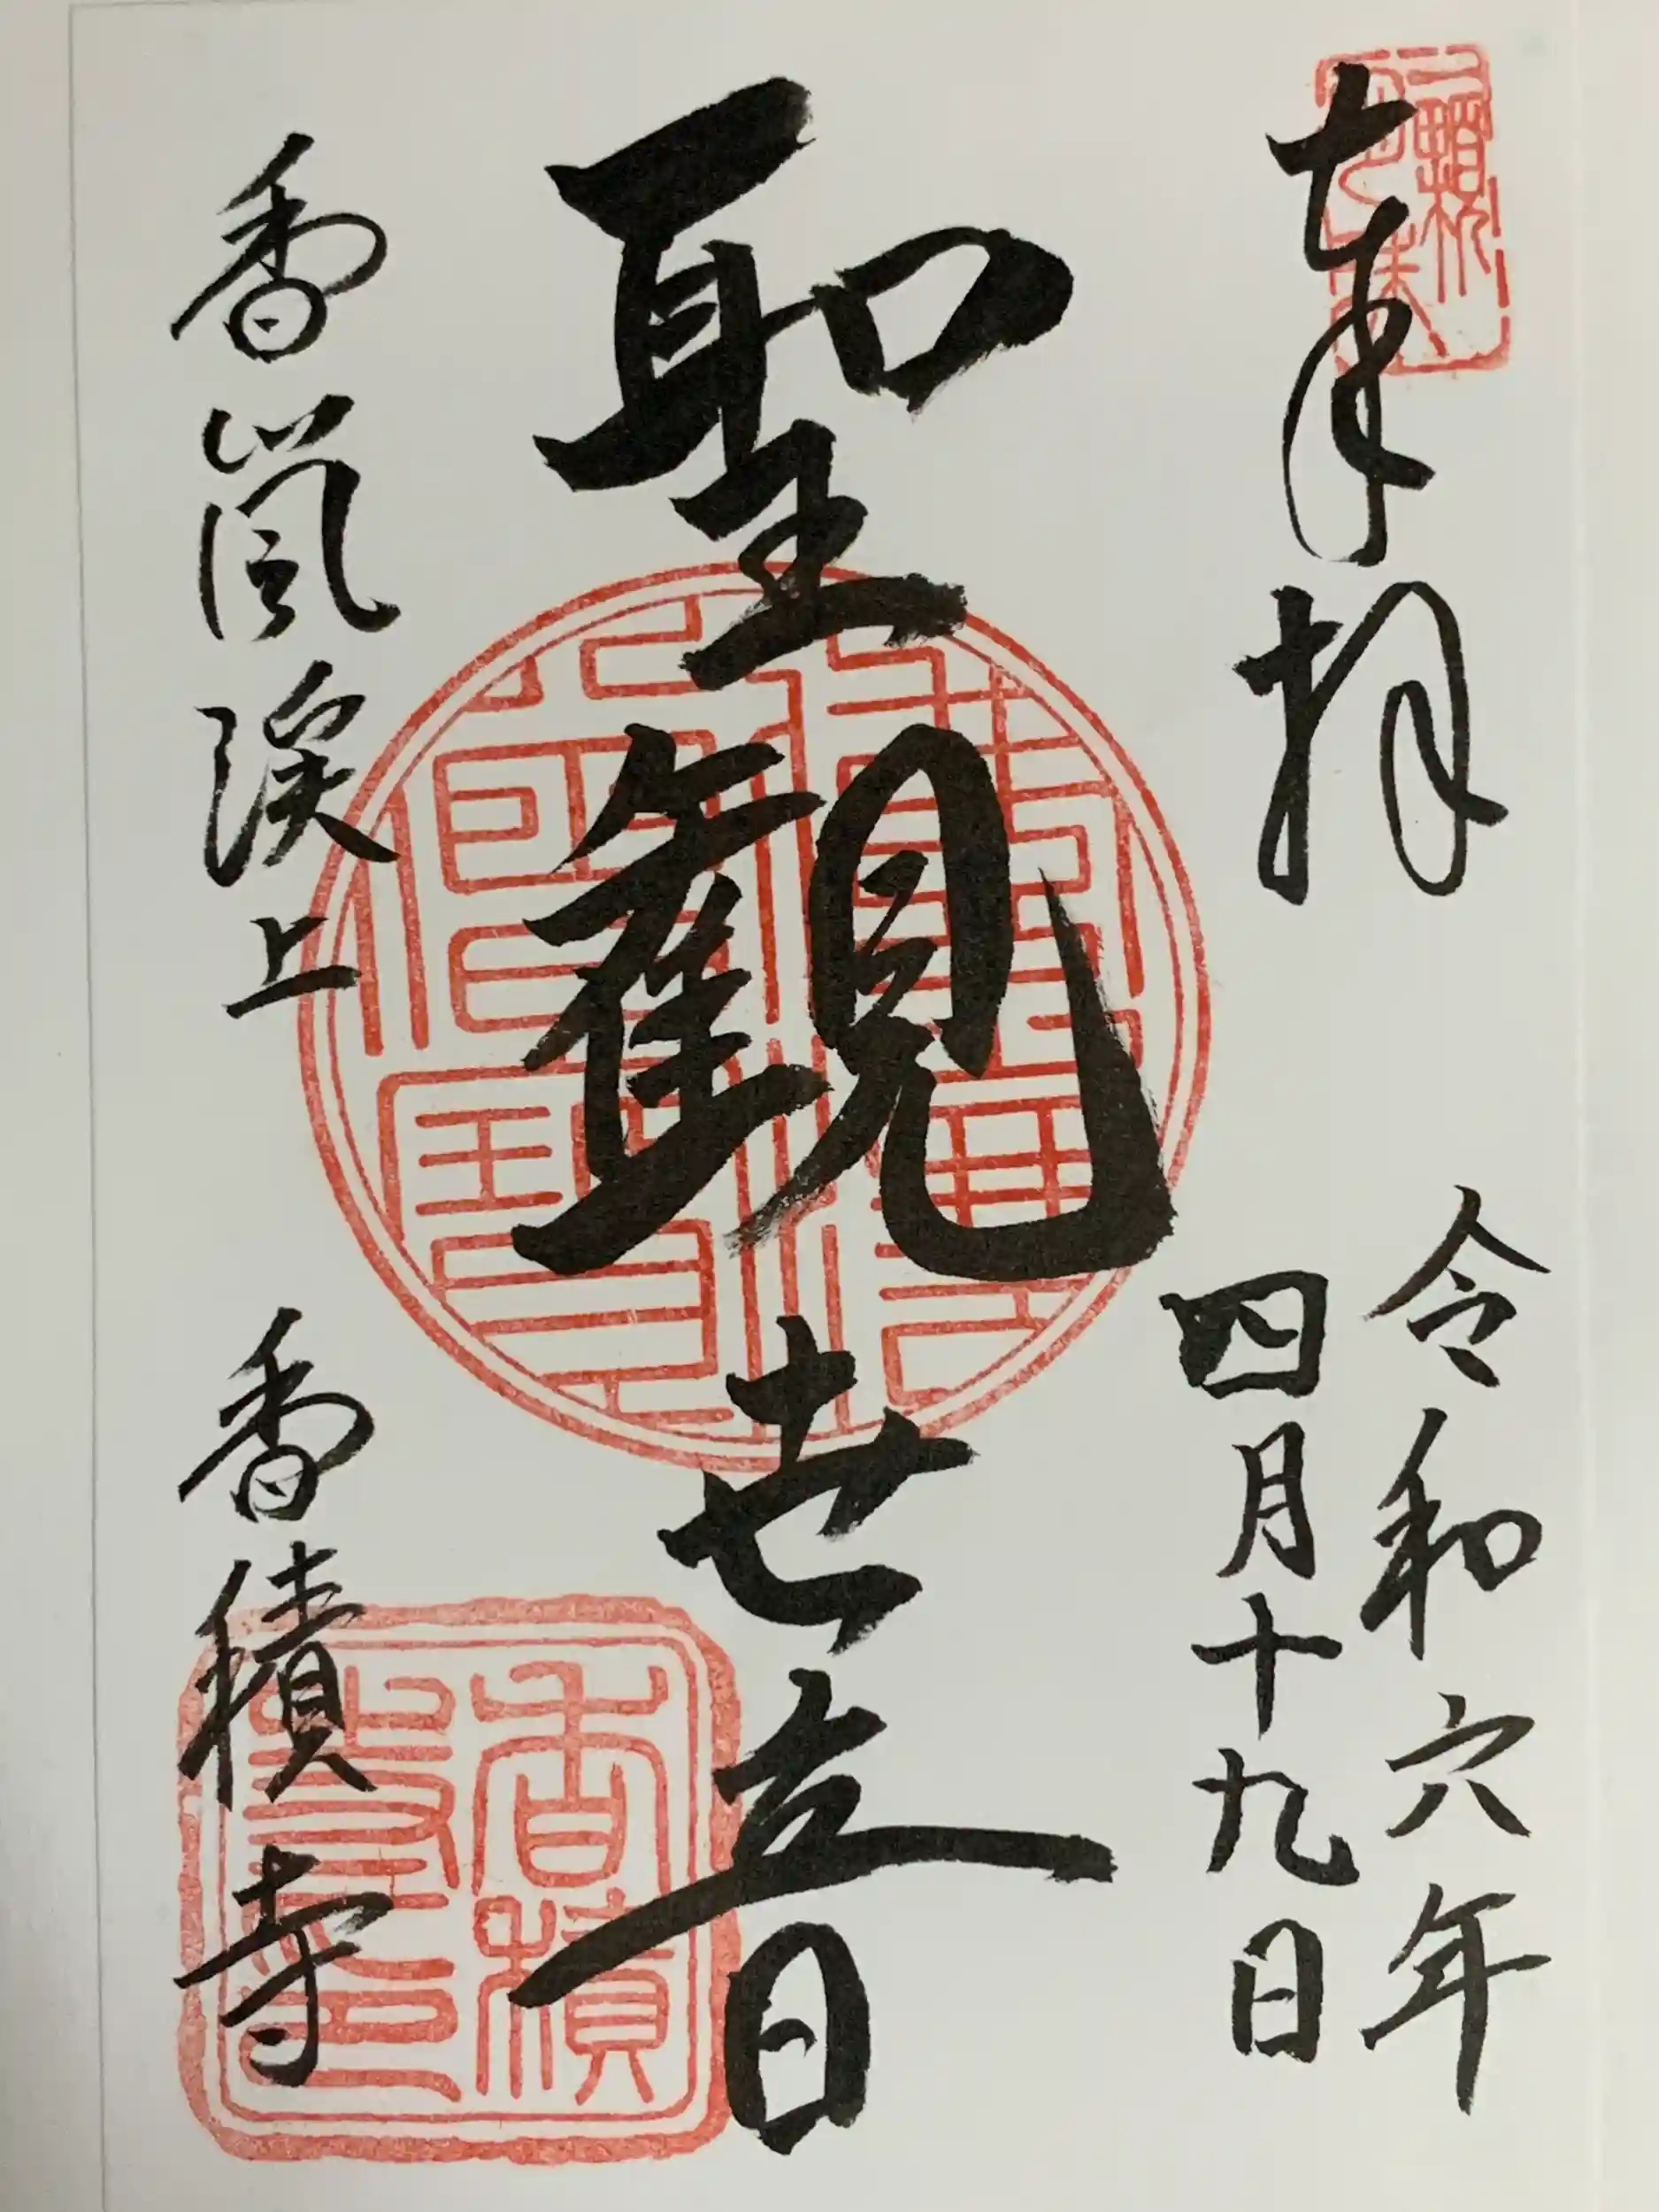 奉拝
令和六年
四月十九日
聖觀世音
香嵐渓上 香積寺
香積